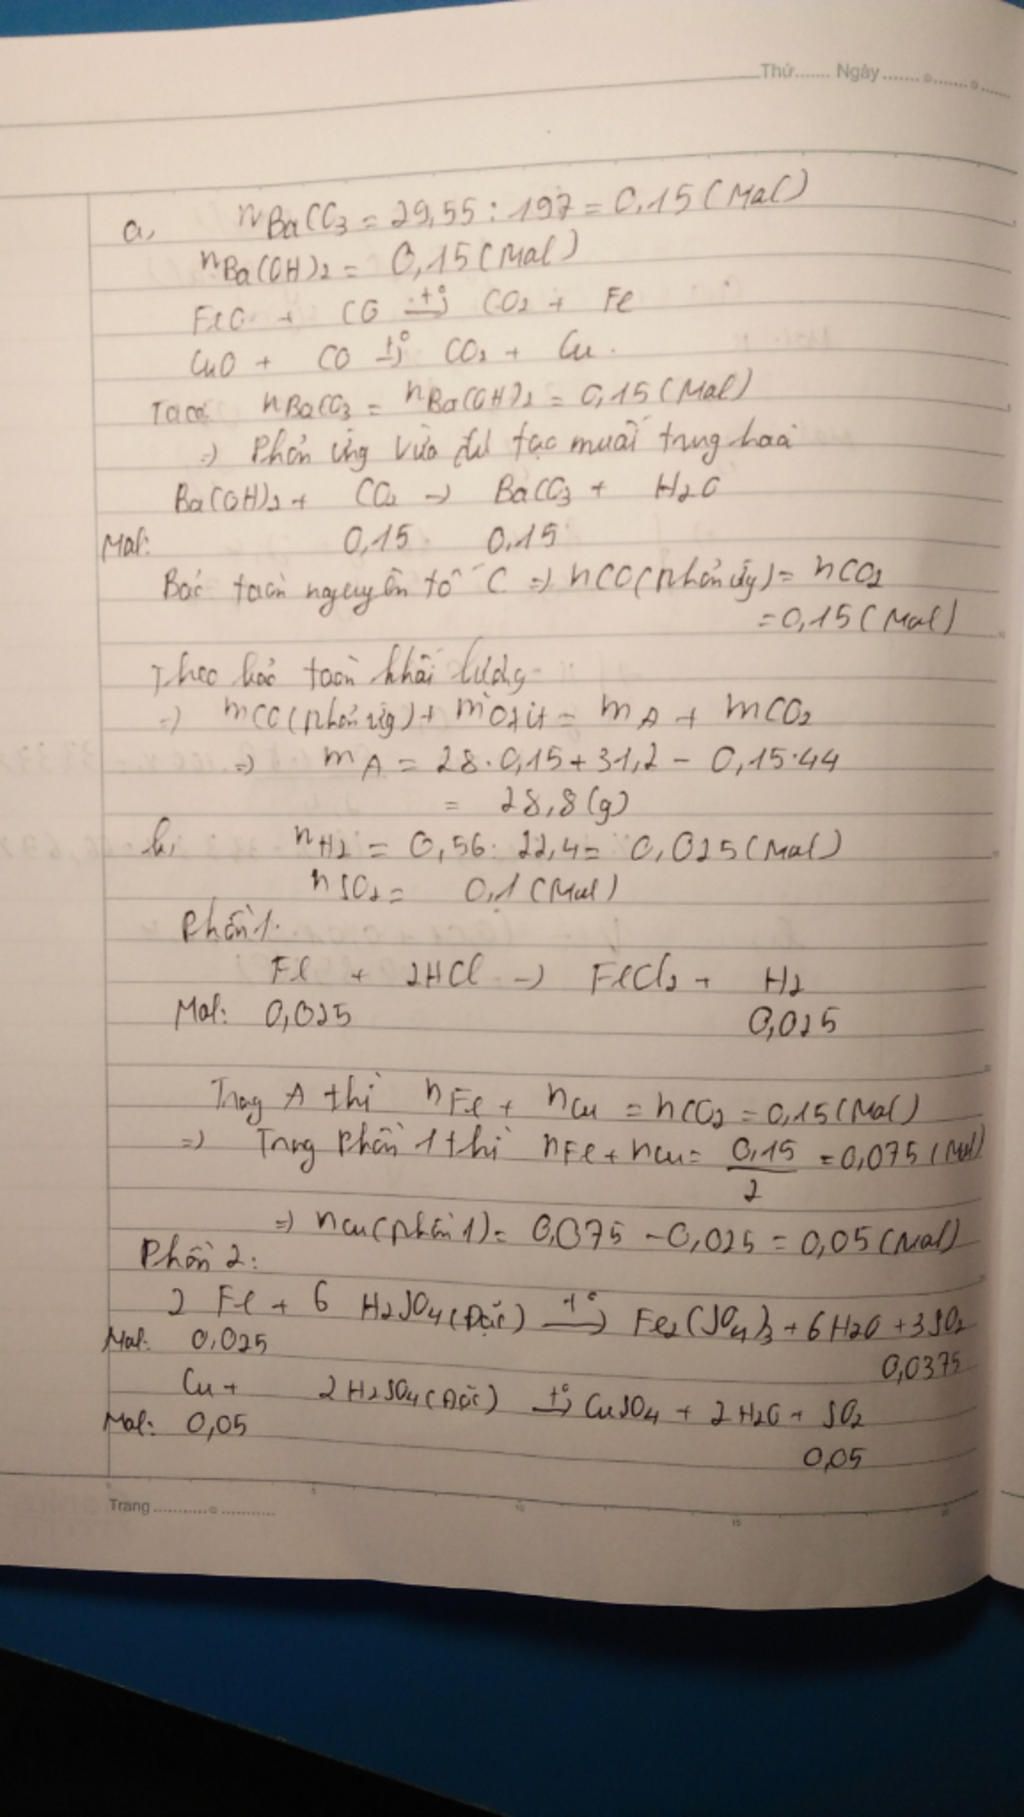 Thứ....... Ngày.......o.......o......
a, nBaCO3 = 29,55 : 197 = 0,15 (Mol)
nBa(OH)2 = 0,15 (Mol)
FeO + CO →t° CO2 + Fe
CuO + CO →t° CO2 + Cu.
Ta có: nBaCO3 = nBa(OH)2 = 0,15 (Mol)
=) Phản ứng vừa đủ tạo muối trung hoà
Ba(OH)2 + CO2 → BaCO3 + H2O
Mol: 0,15 0,15
Bảo toàn nguyên tố C =) nCO(phản ứng) = nCO2
= 0,15 (Mol)
Theo bảo toàn khối lượng
=) mCO(phản ứng) + mOxit = mA + mCO2
=) mA = 28.0,15 + 31,2 - 0,15.44
= 28,8 (g)
b, nH2 = 0,56 : 22,4 = 0,025 (Mol)
nSO2 = 0,1 (Mol)
Phần 1.
Fe + 2HCl → FeCl2 + H2
Mol: 0,025 0,025
Trong A thì nFe + nCu = nCO2 = 0,15 (Mol)
=) Trong Phần 1 thì nFe + nCu = 0,15/2 = 0,075 (Mol)
=) nCu(phần 1) = 0,075 - 0,025 = 0,05 (Mol)
Phần 2:
2 Fe + 6 H2SO4 (Đặc) →t° Fe2(SO4)3 + 6H2O + 3SO2
Mol: 0,025 0,0375
Cu + 2H2SO4 (Đặc) →t° CuSO4 + 2H2O + SO2
Mol: 0,05 0,05
Trang...........o...........
5 10 15